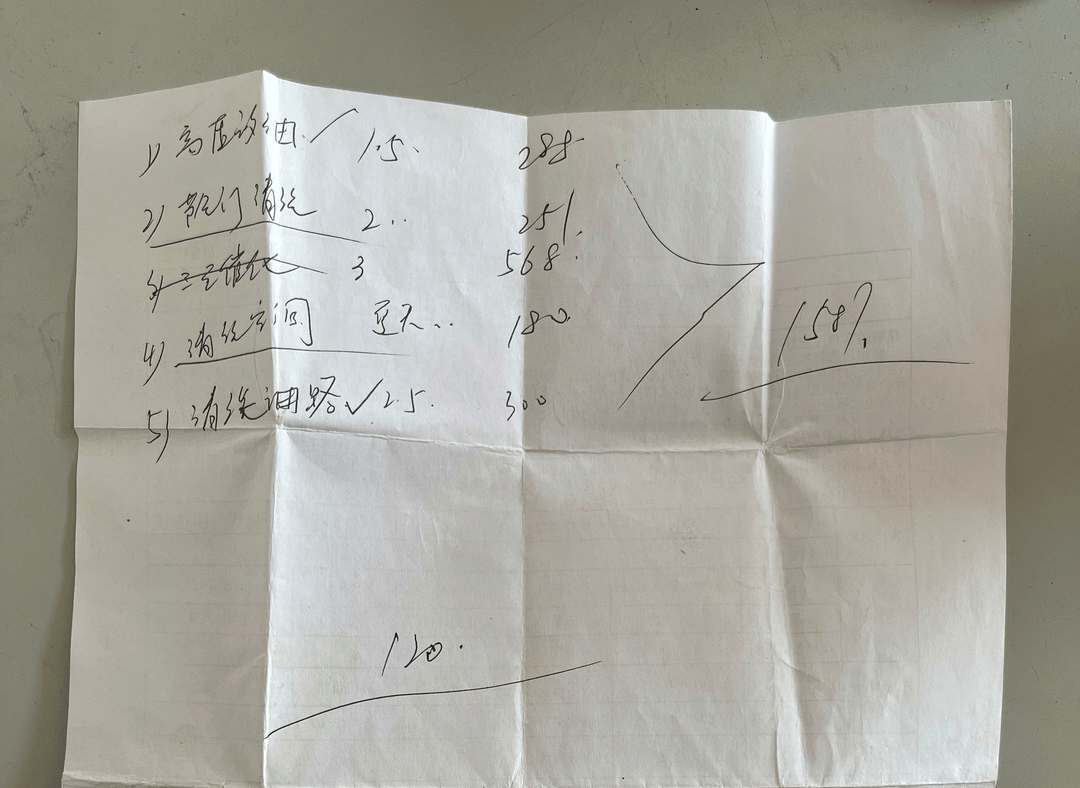 1) 高压 油 ✓ 1.5. 288
2) 节气门清洗 2.. 251.
3) 三元催化 3 568.
4) 清洗空 ... 180
5) 清洗油路 ✓ 2.5. 300
1587.
120.